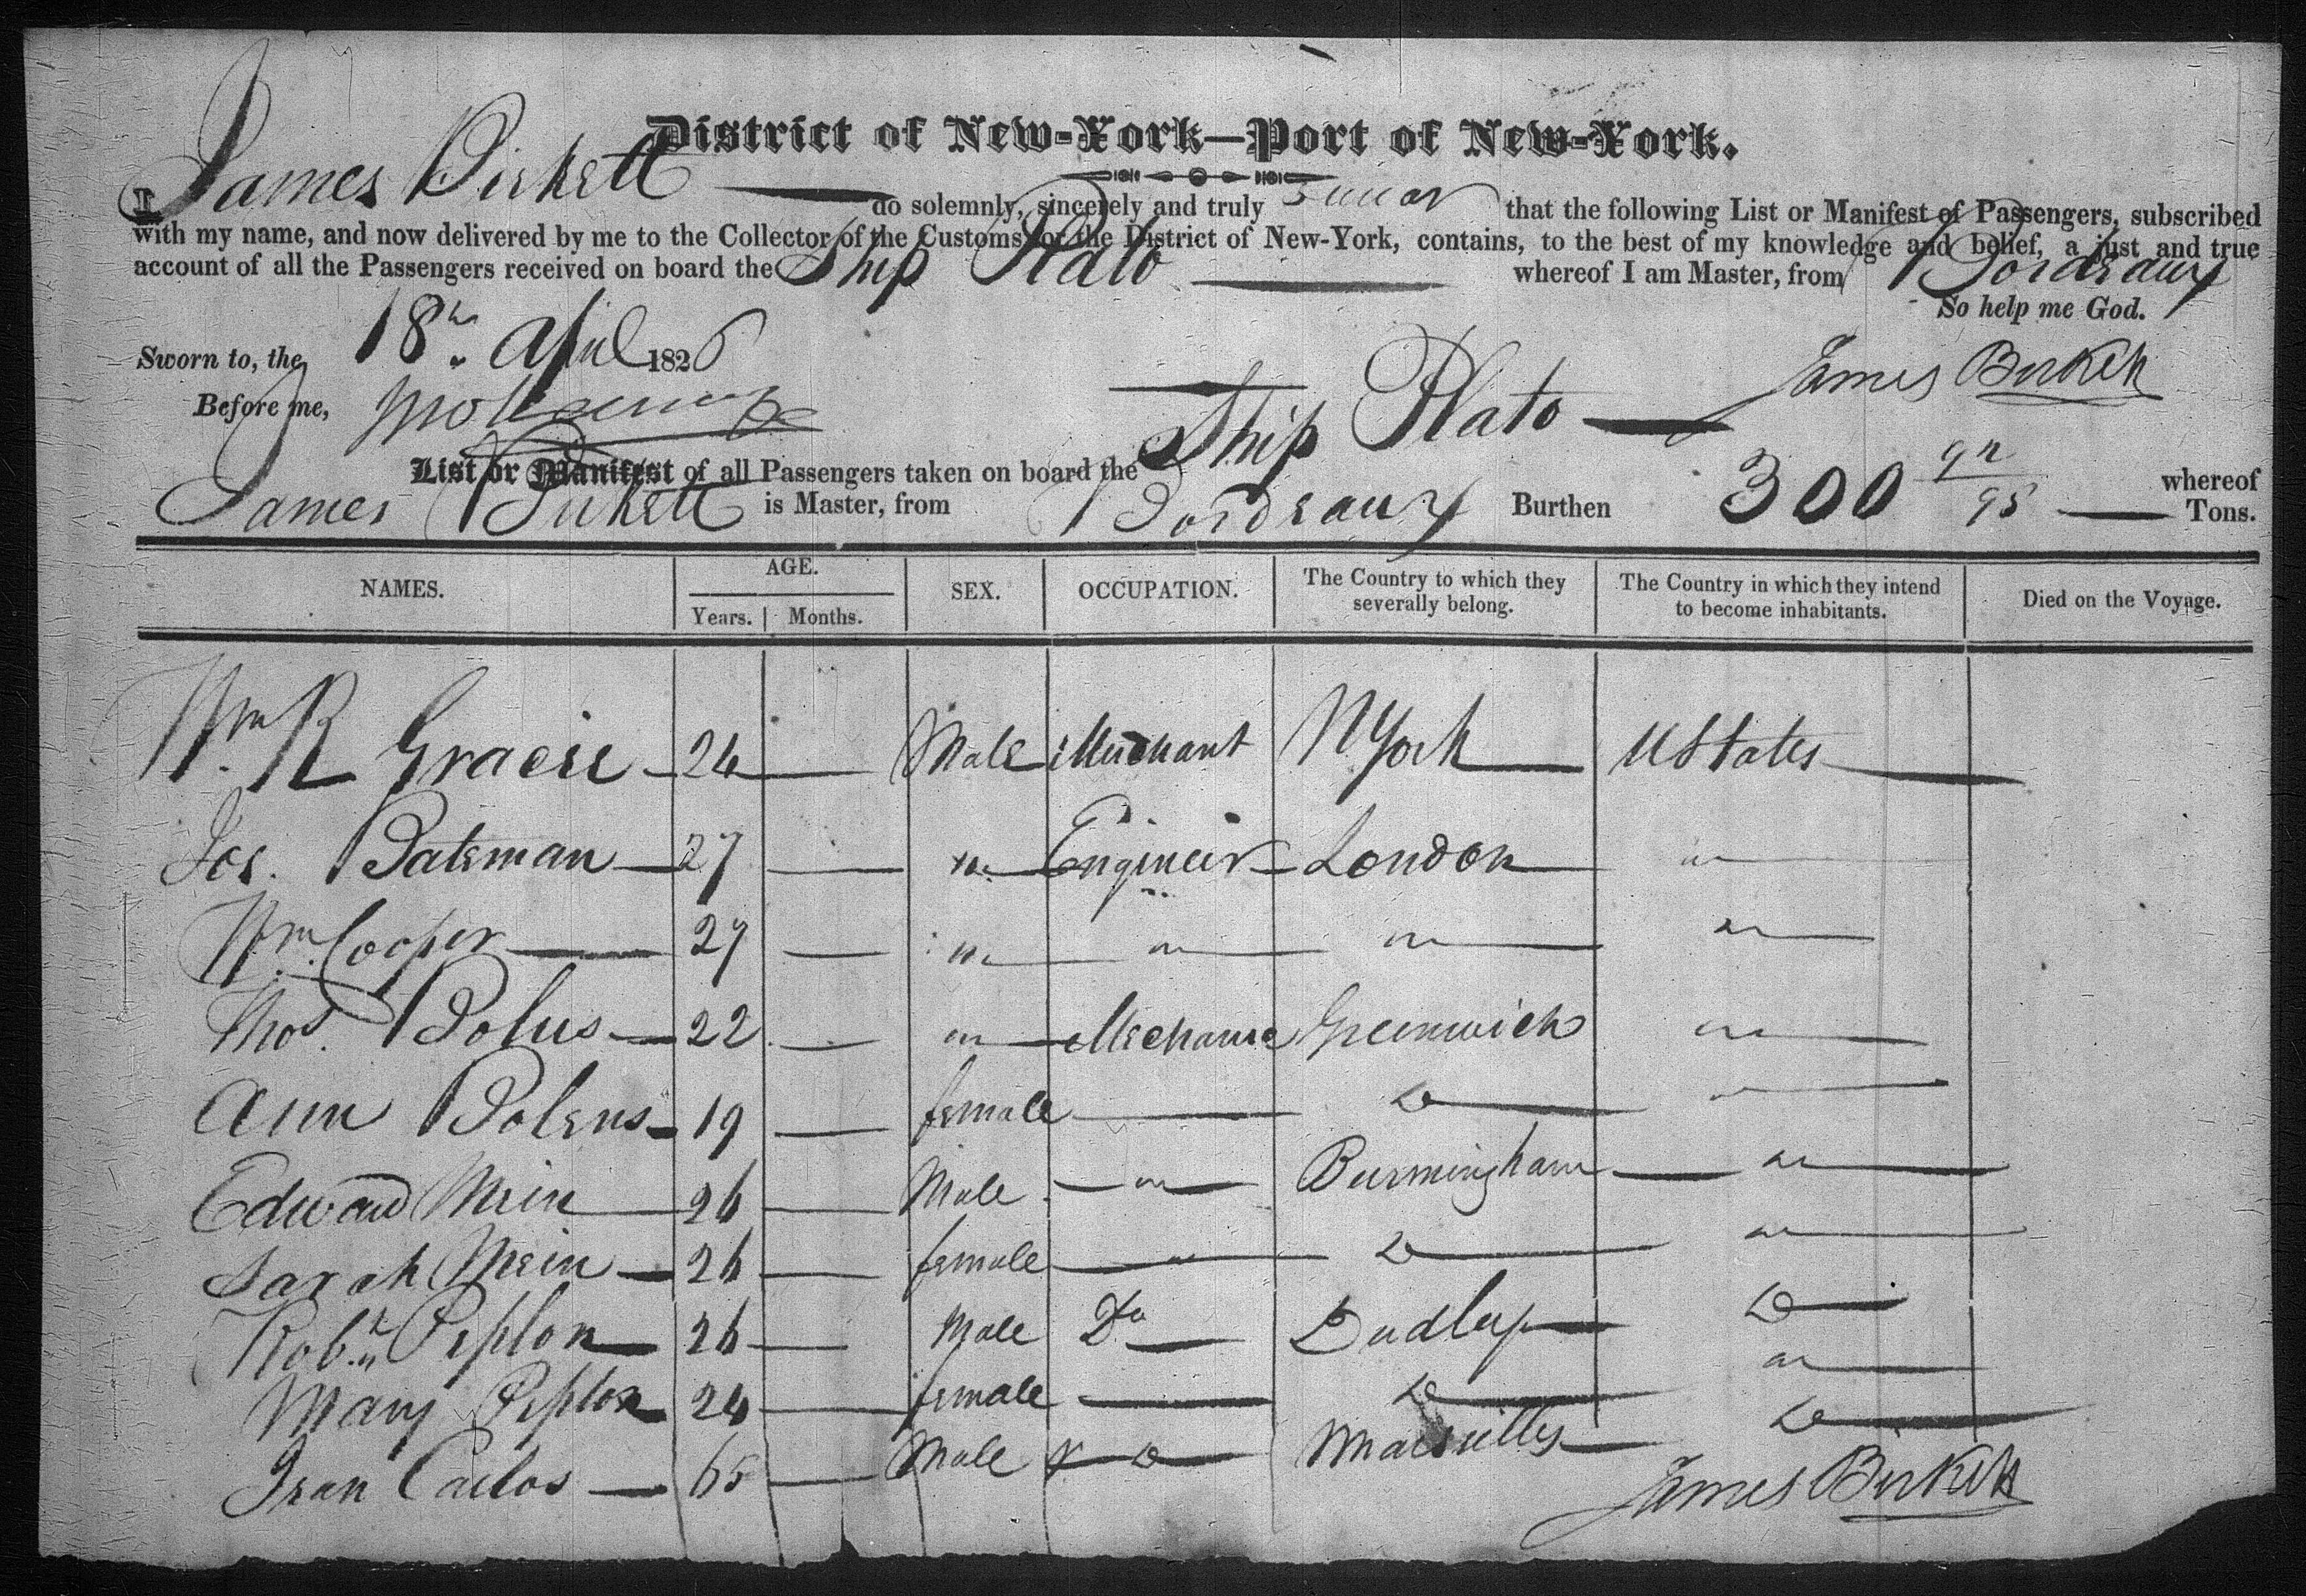 District of New-York—Port of New-York.
I James Birkett do solemnly, sincerely and truly swear that the following List or Manifest of Passengers, subscribed
with my name, and now delivered by me to the Collector of the Customs for the District of New-York, contains, to the best of my knowledge and belief, a just and true
account of all the Passengers received on board the Ship Plato whereof I am Master, from Bordeaux
So help me God.
Sworn to, the 18th April 1826
James Birkett
Before me,
List or Manifest of all Passengers taken on board the Ship Plato whereof
James Birkett is Master, from Bordeaux Burthen 300 92/95 Tons.
NAMES. AGE. Years. Months. SEX. OCCUPATION. The Country to which they severally belong. The Country in which they intend to become inhabitants. Died on the Voyage.
Wm. R Gracie 24 Male Merchant N York U States
Jos. Bateman 27 " Engineer London "
Wm. Cooper 27 " " " "
Thos. Bolus 22 " Mechanic Greenwich "
Ann Bolens 19 female Do "
Edward Mein 26 Male " Burmingham "
Sarah Mein 26 female " Do "
Robt. Peplon 26 Male Do Dudley Do
Mary Peplon 24 female Do "
Jean Carlos 65 Male Do Marsielles Do
James Birkett